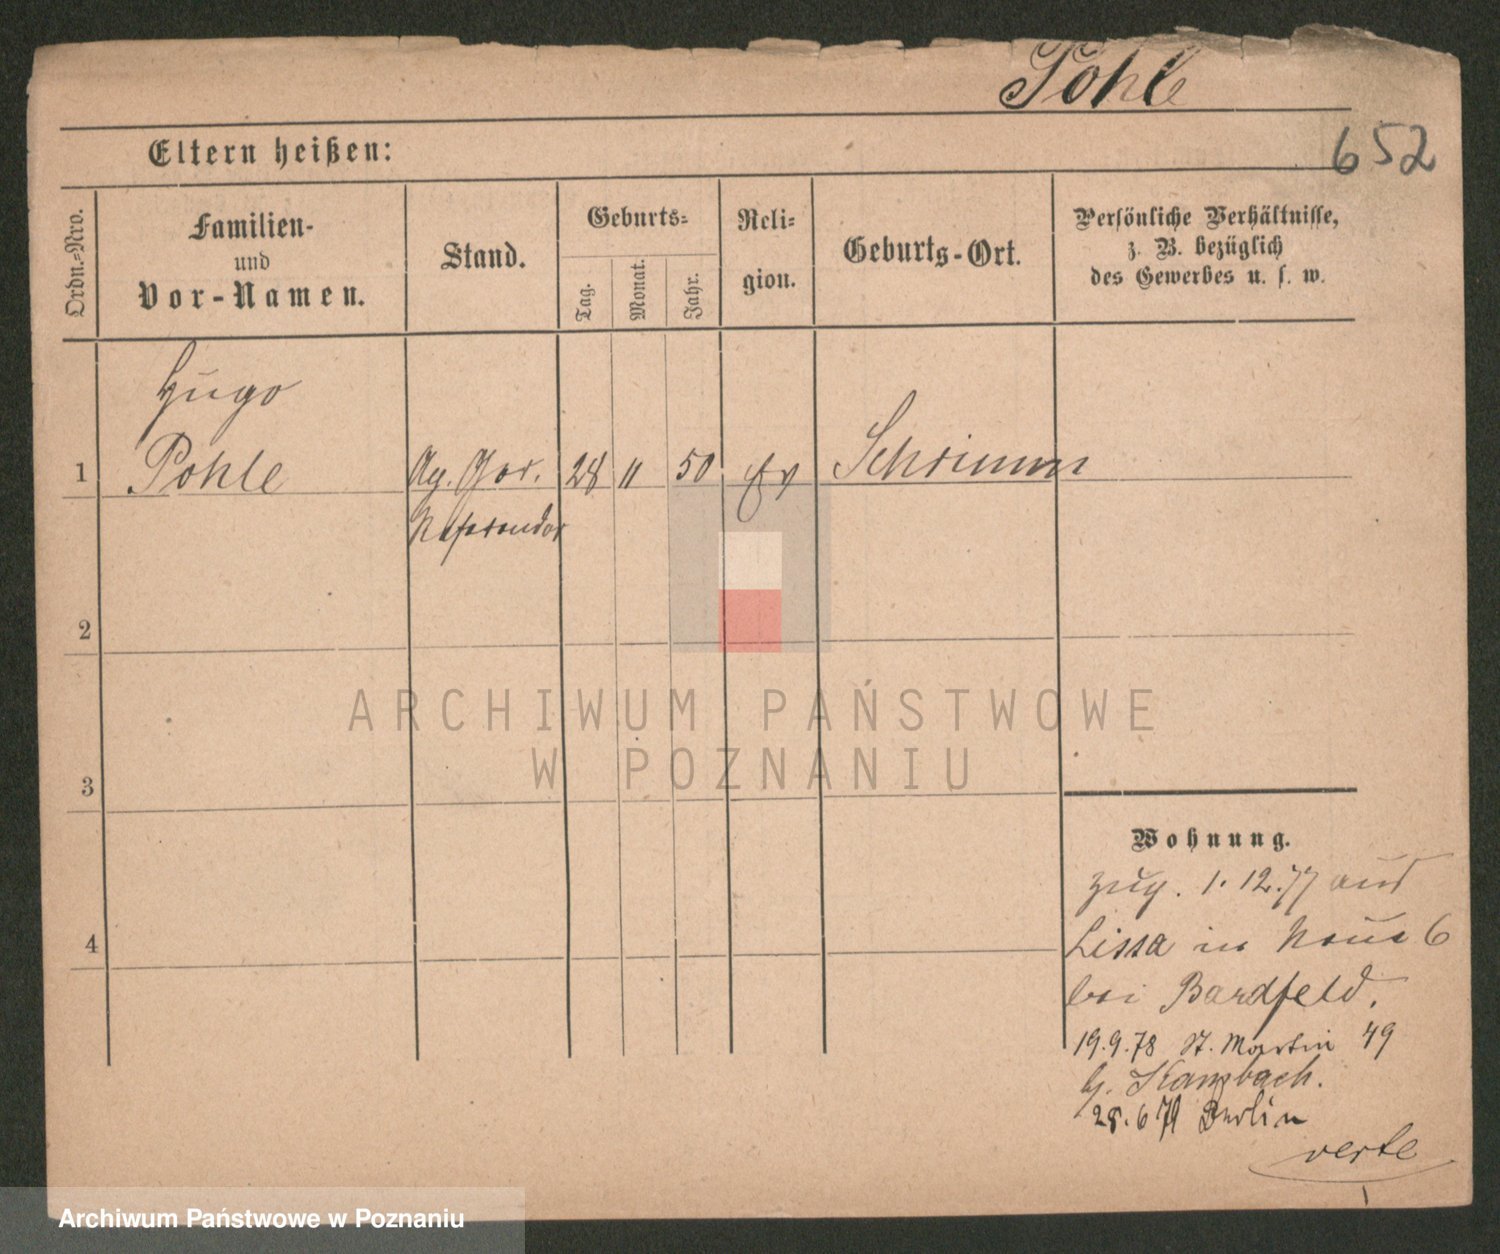 Pohle
652
Eltern heißen:
Ordn.-Nro.
Familien-
und
Vor-Namen.
Stand.
Geburts-
Tag.
Monat.
Jahr.
Reli-
gion.
Geburts-Ort.
Persönliche Verhältnisse,
z. B. bezüglich
des Gewerbes u. s. w.
Hugo
1 Pohle 28 11 50 Ev Schrimm
Referendar
2
3
4
ARCHIWUM PAŃSTWOWE
W POZNANIU
Wohnung.
zug. 1. 12. 77 aus
Lissa in 6
bei Bardfeld.
19.9.78 St. Martin 49
b.
28.6 79 Berlin
verte
Archiwum Państwowe w Poznaniu